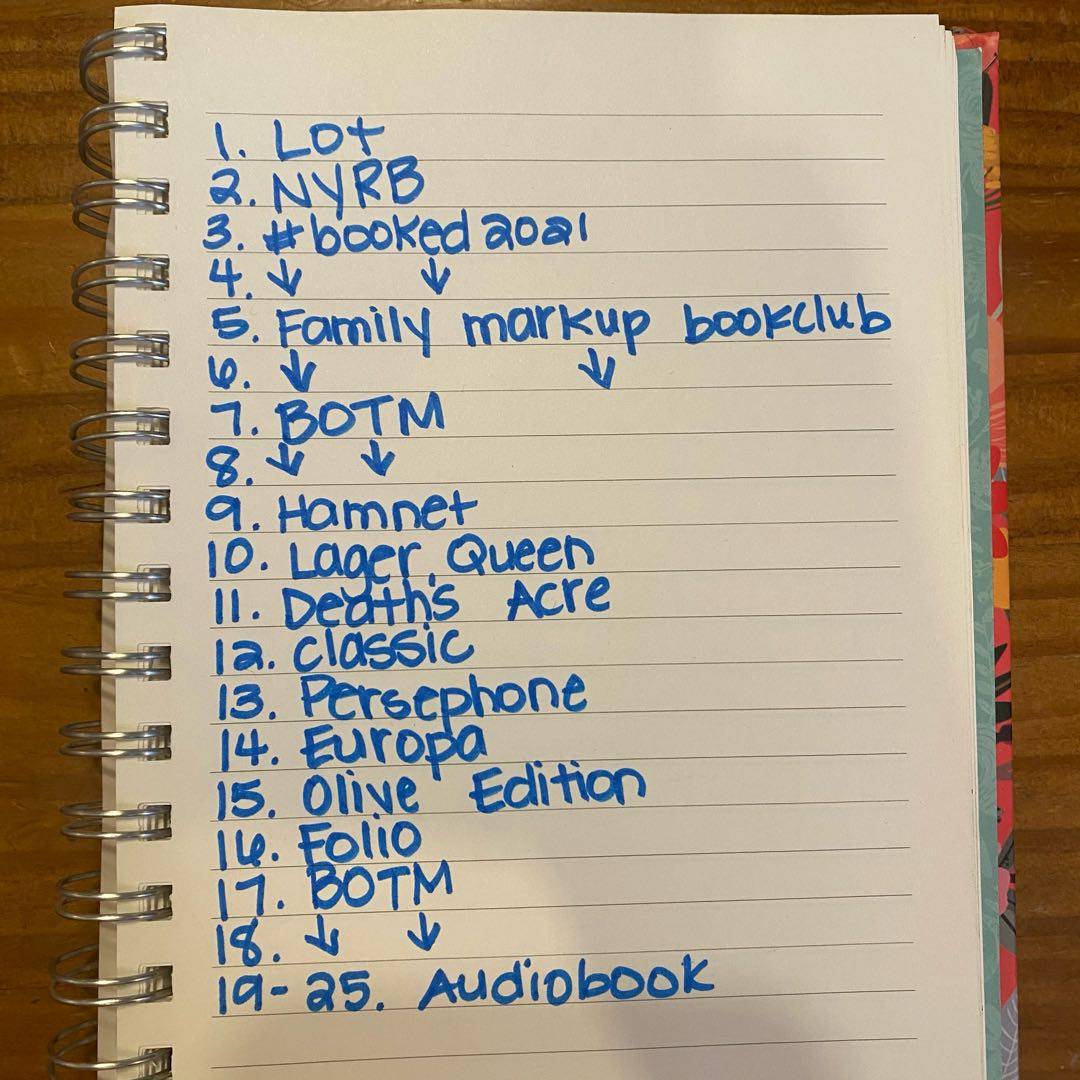 1. Lot
2. NYRB
3. #booked2021
4. ↓ ↓
5. Family markup bookclub
6. ↓ ↓
7. BOTM
8. ↓ ↓
9. Hamnet
10. Lager Queen
11. Death's Acre
12. classic
13. Persephone
14. Europa
15. Olive Edition
16. Folio
17. BOTM
18. ↓ ↓
19-25. Audiobook